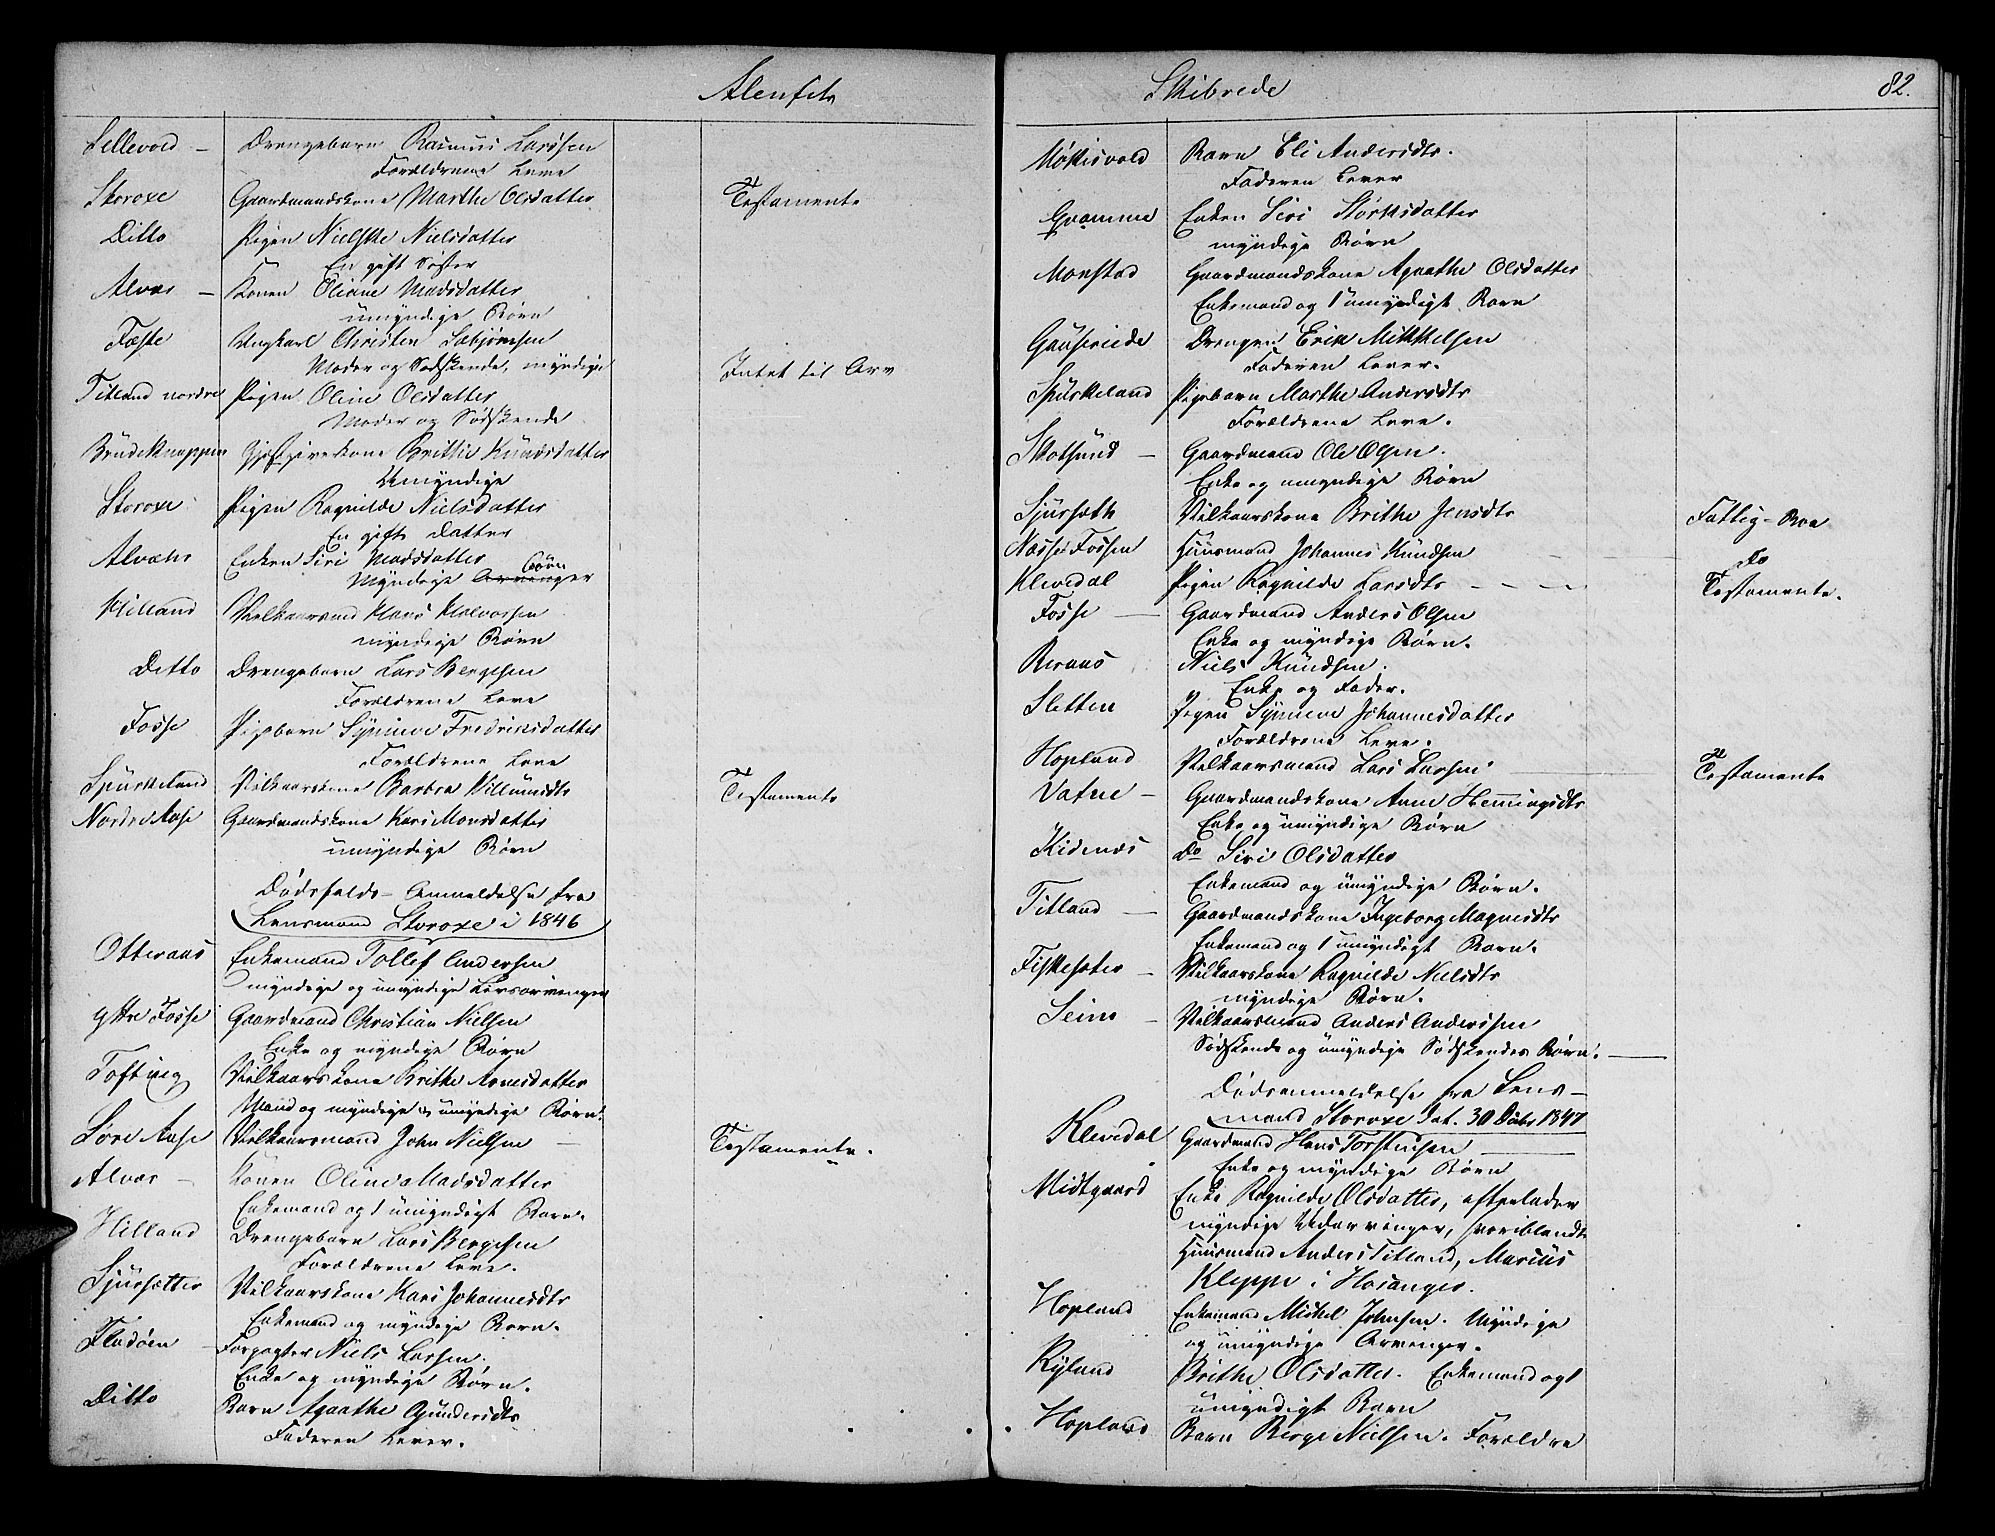 Alenfits
Sellevold - Drengebarn Rasmus Larssen
Forældrene Leve
Storoxe Gaardmandskone Marthe Olsdatter Testamente
Ditto Pigen Nielske Nielsdatter
En gift Søster
Alvær - Konen Oliane Madsdatter
umyndige Børn
Feste Ungkarl Christen Sebjørnsen
Moder og Sødskende, myndige Intet til Arv
Titland nordre Pigen Oline Olsdatter
Moder og Sødskende
Brudeknappen Gjestgiverkone Brithe Knudsdatter
Umyndige
Storoxe Pigen Ragnilde Nielsdatter
En gift Datter
Alvær Enken Siri Madsdatter
Myndige Arvinger Børn
Hilland Vilkaarsmd Hans Halvorsen
myndige Børn
Ditto Drengebarn Lars Bergesen
Forældrene Leve
Fosse Pigebarn Synneve Fredriksdatter
Forældrene Leve
Spurkeland Vilkaarskone Barbra Villumsdtr Testamente
Nordre Aase Gaardmandskone Kari Monsdatter
umyndige Børn
Dødsfalds-Anmeldelse fra
Lensmand Storoxe i 1846
Otteraas Enkemand Tollef Andersen
myndige og umyndige Livsarvinger
Yttre Fosse Gaardmand Christian Nielsen
Enke og myndige Børn
Tofting Vilkaarskone Brithe Arnesdatter
Mand og myndige og umyndige Børn.
Søre Aase Vilkaarsmand John Nielsen - Testamente.
Alvær - Konen Olina Madsdatter
Enkemand og 1 umyndigt Barn.
Hilland Drengebarn Lars Bergesen
Forældrene Leve.
Sjursætter Vilkaarskone Kari Johannesdtr
Enkemand og myndige Børn.
Fladøen - Forpagter Niels Larsen.
Enke og myndige Børn.
Ditto Barn Agathe Gundersdtr
Faderen Lever.
Skibrede 82.
Møkisvold Barn Eli Andersdtr.
Faderen Lever
Gramme Enken Siri Størksdatter
myndige Børn
Monstad Gaardmandskone Agathe Olsdatter
Enkemand og 1 umyndigt Barn
Gausereide Drengen Erik Mikkelsen
Faderen Lever.
Spurkeland Pigebarn Marthe Andersdtr
Forældrene Leve.
Skotsund - Gaardmand Ole Olsen.
Enke og umyndige Børn
Sjursæth Vilkaarskone Brithe Jensdtr Fattig-Bo
Nesse Fossen Huusmand Johannes Knudsen Do
Klevedal Pigen Ragnilde Larsdtr - - - Testamente.
Fosse - Gaardmand Anders Olsen
Enke og myndige Børn.
Beraas Niels Knudsen.
Enke og Fader.
Sletten Pigen Synneve Johannesdatter
Forældrene Leve.
Hopland Vilkaarsmand Lars Larsen - Testamente
Vatne - Gaardmandskone Anne Hemmingsdtr
Enke og umyndige Børn
Kidenæs Do Siri Olsdatter
Enkemand og umyndige Børn.
Titland - Gaardmandskone Ingeborg Magnesdtr
Enkemand og 1 umyndigt Barn.
Fiskesæter - Vilkaarskone Ragnilde Nielsdtr
myndige Børn.
Seim - Vilkaarsmand Anders Anderssen
Sødskende og umyndige Sødskendes Børn.
Dødsanmeldelse fra Lens-
mand Storoxe Dat. 30 Octbr 1847
Klevedal Gaardmand Hans Torstensen
Enke og myndige Børn
Midtgaard Enke Ragnilde Olsdatter, efterlader
myndige Udarvinger, hvoriblandt
Huusmand Anders Titland, Marius
Kleppe i Hosanger.
Hopland Enkemand Mickel Johnsen. Myndige
og umyndige Arvinger.
Ryland Brithe Olsdatter. Enkemand og 1
umyndigt Barn
Hopland Barn Berge Nielsen. Forældre